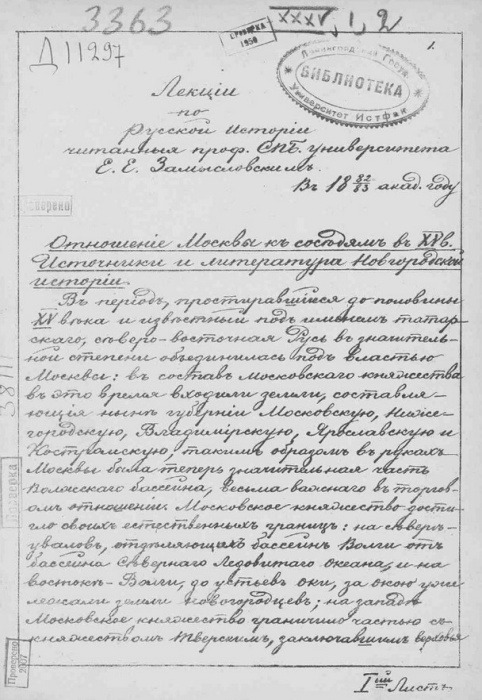 3363
XXXV, 1, 2
ПРОВЕРКА
1950
Д11297
1.
Ленинградский Госуд.
БИБЛИОТЕКА
Университет Истфак
Лекціи
по
Русской Исторіи
читанныя проф. СПБ. университета
Е. Е. Замысловскимъ.
Въ 18 82/83 акад. году
Отношеніе Москвы къ сосѣдямъ въ XV в.
Источники и литература Новгородской
исторіи.
Въ періодъ, простиравшійся до половины
XV вѣка и извѣстный подъ именемъ татар-
скаго, сѣверо-восточная Русь въ значитель-
ной степени объединилась подъ властью
Москвы: въ составъ Московскаго княжества
въ это время входили земли, составля-
ющія нынѣ губерніи Московскую, Ниже-
городскую, Владимірскую, Ярославскую и
Костромскую, такимъ образомъ въ рукахъ
Москвы была теперь значительная часть
Волжскаго бассейна, весьма важнаго въ торгов-
омъ отношеніи. Московское княжество дости-
гло своихъ естественныхъ границъ: на сѣверѣ-
уваловъ, отдѣляющихъ бассейнъ Волги отъ
бассейна Сѣвернаго Ледовитаго океана, и на
востокѣ-Волги, до устьевъ Оки, за окою уже
лежали земли новогородцевъ; на западѣ
Московское княжество граничило частью съ
княжествомъ Тверскимъ, заключавшимъ верховья
Проверено
2007
Iый Листъ